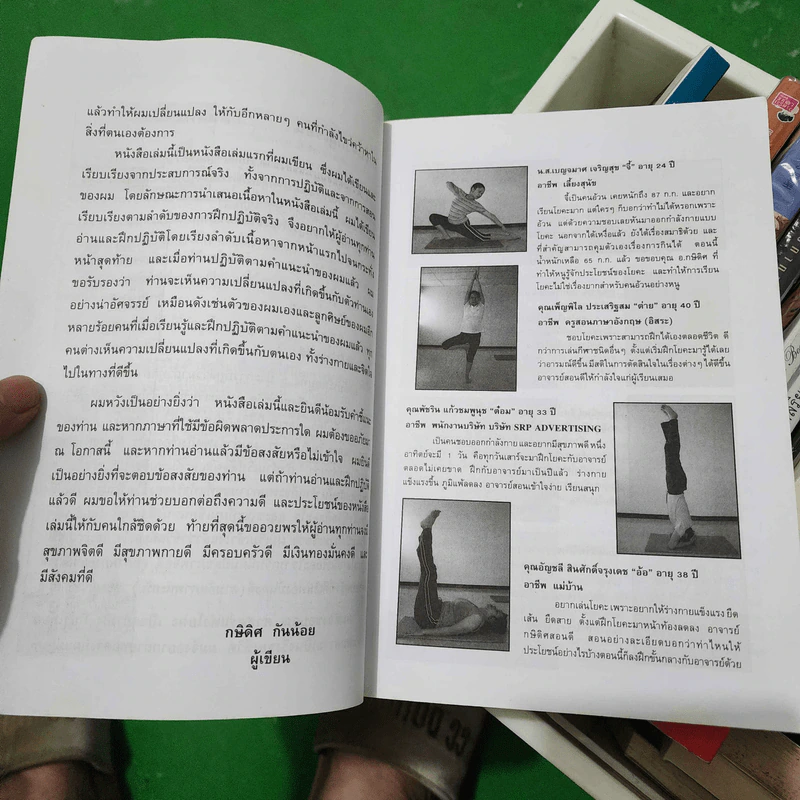 แล้วทำให้ผมเปลี่ยนแปลง ให้กับอีกหลายๆ คนที่กำลังไขว่คว้าหา
สิ่งที่ตนเองต้องการ
หนังสือเล่มนี้เป็นหนังสือเล่มแรกที่ผมเขียน ซึ่งผมได้เขียนและ
เรียบเรียงจากประสบการณ์จริง ทั้งจากการปฏิบัติและจากการสอน
ของผม โดยลักษณะการนำเสนอเนื้อหาในหนังสือเล่มนี้ ผมได้เรียง
เรียบเรียงตามลำดับของการฝึกปฏิบัติจริง จึงอยากให้ผู้อ่านทุกท่าน
อ่านและฝึกปฏิบัติโดยเรียงลำดับเนื้อหาจากหน้าแรกไปจนกระทั่ง
หน้าสุดท้าย และเมื่อท่านปฏิบัติตามคำแนะนำของผมแล้ว ผม
ขอรับรองว่า ท่านจะเห็นความเปลี่ยนแปลงที่เกิดขึ้นกับตัวท่านเอง
อย่างน่าอัศจรรย์ เหมือนดังเช่นตัวของผมเองและลูกศิษย์ของผมอีก
หลายร้อยคนที่เมื่อเรียนรู้และฝึกปฏิบัติตามคำแนะนำของผมแล้ว ทุก
คนต่างเห็นความเปลี่ยนแปลงที่เกิดขึ้นกับตนเอง ทั้งร่างกายและจิตใจ
ไปในทางที่ดีขึ้น
ผมหวังเป็นอย่างยิ่งว่า หนังสือเล่มนี้และยินดีน้อมรับคำชี้แนะ
ของท่าน และหากภาษาที่ใช้มีข้อผิดพลาดประการใด ผมต้องขออภัยมา
ณ โอกาสนี้ และหากท่านอ่านแล้วมีข้อสงสัยหรือไม่เข้าใจ ผมยินดี
เป็นอย่างยิ่งที่จะตอบข้อสงสัยของท่าน แต่ถ้าท่านอ่านและฝึกปฏิบัติ
แล้วดี ผมขอให้ท่านช่วยบอกต่อถึงความดี และประโยชน์ของหนังสือ
เล่มนี้ให้กับคนใกล้ชิดด้วย ท้ายที่สุดนี้ขออวยพรให้ผู้อ่านทุกท่านจงมี
สุขภาพจิตดี มีสุขภาพกายดี มีครอบครัวดี มีเงินทองมั่นคงดี และ
มีสังคมที่ดี
กษิดิศ กันน้อย
ผู้เขียน
น.ส.เบญจมาศ เจริญสุข "จี้" อายุ 24 ปี
อาชีพ เลี้ยงสุนัข
จี้เป็นคนอ้วน เคยหนักถึง 87 ก.ก. และอยาก
เรียนโยคะมาก แต่ใครๆ ก็บอกว่าทำไม่ได้หรอกเพราะ
อ้วน แต่ด้วยความชอบเลยหันมาออกกำลังกายแบบ
โยคะ นอกจากได้เหงื่อแล้ว ยังได้เรื่องสมาธิด้วย และ
ที่สำคัญสามารถคุมตัวเองเรื่องการกินได้ ตอนนี้
น้ำหนักเหลือ 65 ก.ก. แล้ว ขอขอบคุณ อ.กษิดิศ ที่
ทำให้หนูรู้จักประโยชน์ของโยคะ และทำให้การเรียน
โยคะไม่ใช่เรื่องยากสำหรับคนอ้วนอย่างหนู
คุณเพ็ญพิไล ประเสริฐสม "ต่าย" อายุ 40 ปี
อาชีพ ครูสอนภาษาอังกฤษ (อิสระ)
ชอบโยคะเพราะสามารถฝึกได้เองตลอดชีวิต ดี
กว่าการเล่นกีฬาชนิดอื่นๆ ตั้งแต่เริ่มฝึกโยคะมารู้ได้เลย
ว่าอารมณ์ดีขึ้น มีสติในการตัดสินใจในเรื่องต่างๆ ได้ดีขึ้น
อาจารย์สอนดีให้กำลังใจแก่ผู้เรียนเสมอ
คุณพัชริน แก้วชมพูนุช "ต้อม" อายุ 33 ปี
อาชีพ พนักงานบริษัท บริษัท SRP ADVERTISING
เป็นคนชอบออกกำลังกาย และอยากมีสุขภาพดี หนึ่ง
อาทิตย์จะมี 1 วัน คือทุกวันเสาร์จะมาฝึกโยคะกับอาจารย์
ตลอดไม่เคยขาด ฝึกกับอาจารย์มาเป็นปีแล้ว ร่างกาย
แข็งแรงขึ้น ภูมิแพ้ลดลง อาจารย์สอนเข้าใจง่าย เรียนสนุก
คุณอัญชลี สินศักดิ์จรุงเดช "อ้อ" อายุ 38 ปี
อาชีพ แม่บ้าน
อยากเล่นโยคะ เพราะอยากให้ร่างกายแข็งแรง ยืด
เส้น ยืดสาย ตั้งแต่ฝึกโยคะมาหน้าท้องลดลง อาจารย์
กษิดิศสอนดี สอนอย่างละเอียดบอกว่าท่าไหนให้
ประโยชน์อย่างไรบ้างตอนนี้ก็ลงฝึกขั้นกลางกับอาจารย์ด้วย